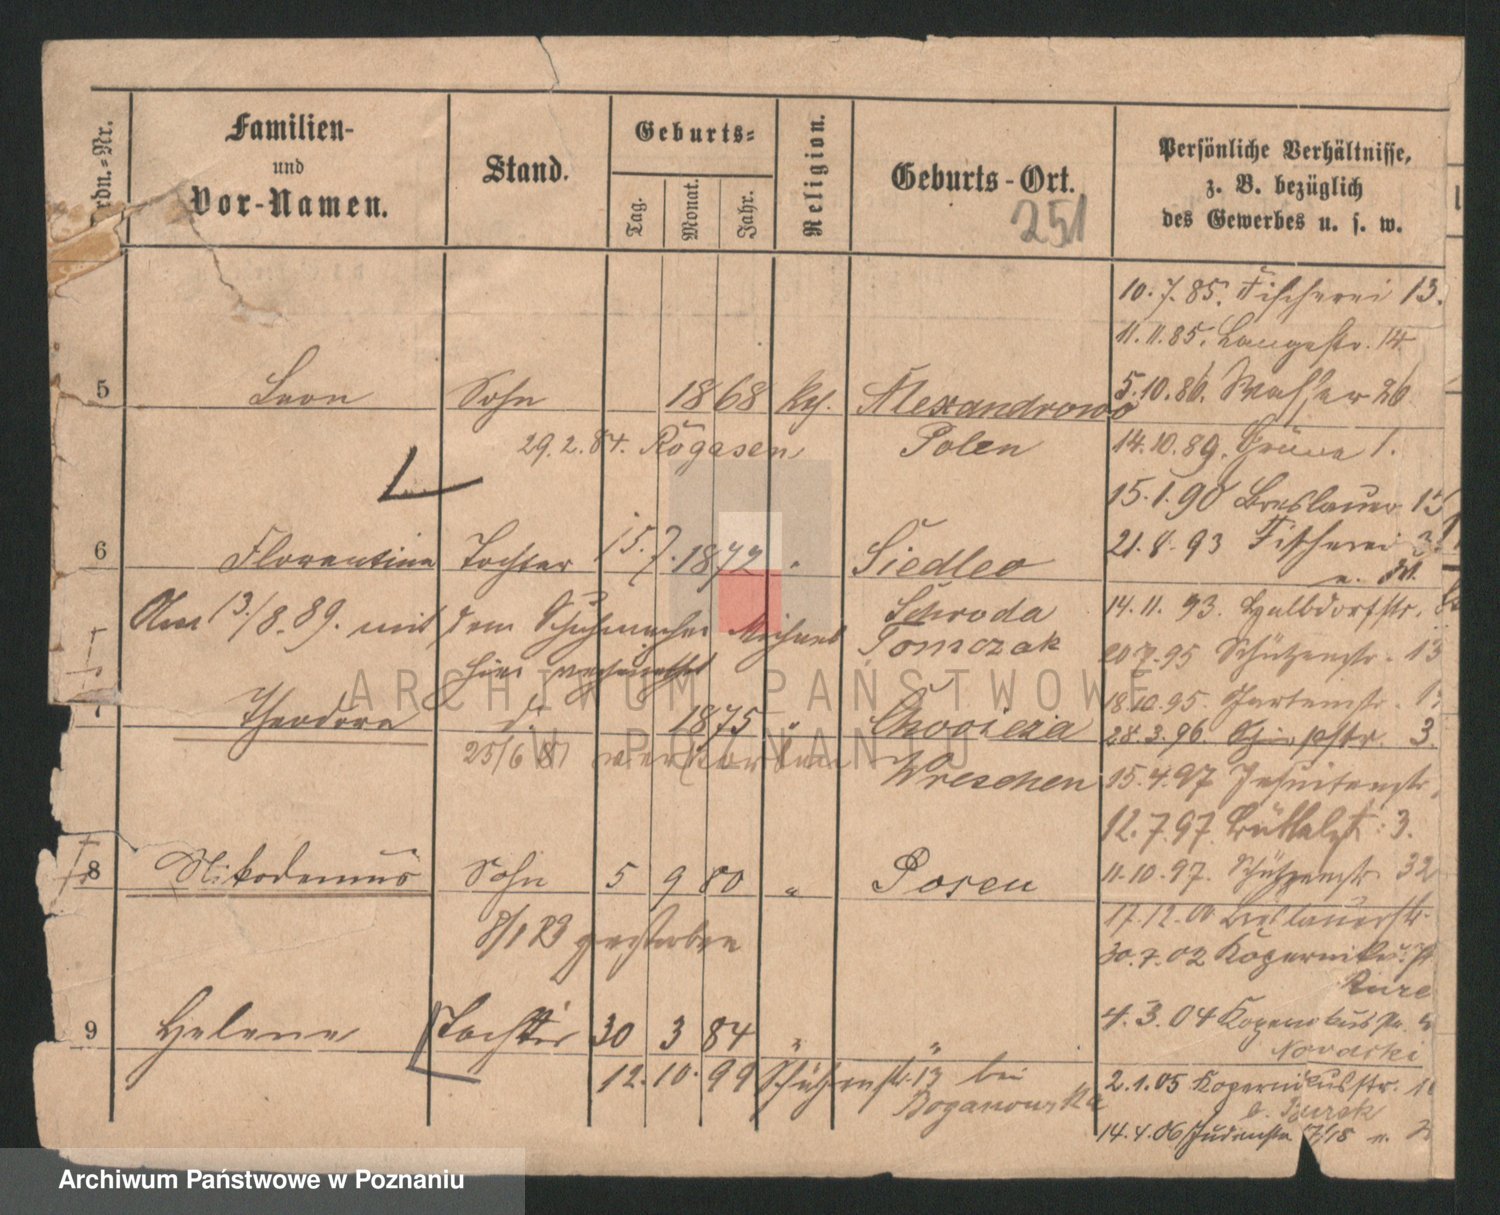 Ordn.-Nr.
Familien-
und
Vor-Namen.
Stand.
Geburts-
Tag.
Monat.
Jahr.
Religion.
Geburts-Ort.
251
Persönliche Verhältnisse,
z. B. bezüglich
des Gewerbes u. s. w.
10.7.85. Fischerei 13.
11.11.85. Langestr. 14
5 Leon Sohn 1868 kh. Alexandrowo
5.10.86. Wasser 26
29.2.84. Rogasen Polen
14.10.89. Grüne 1.
15.1.90 Breslauer 15
6 Florentine Tochter 15.7.1872 " Siedleo
21.8.93 Fischerei 3
Schroda
Am 13./8.89. mit dem Schuhmacher Michael Tomczak
hier verheirathet
14.11.93. Halbdorfstr.
20.7.95 Schützenstr. 13
18.10.95. Gartenstr.
7 Theodora d. 1875 "
28.3.96. 3.
25/6 81 verstorben Wreschen
15.4.97 Jesuitenstr.
12.7.97. 3.
8 Nikodemus Sohn 5 9 80 " Posen
11.10.97. Schützenstr. 32
8/1 83 gestorben
17.12.00 Breslauerstr.
30.7.02 Kopernikusstr.
9 Helene Tochter 30 3 84 " "
4.3.04 Kopernikusstr.
Novacki
12.10.99 Schützenstr. 13 bei
Boganowska
2.1.05 Kopernikusstr.
b. Zurek
14.4.06 Judenstr
ARCHIWUM PAŃSTWOWE
W POZNANIU
Archiwum Państwowe w Poznaniu